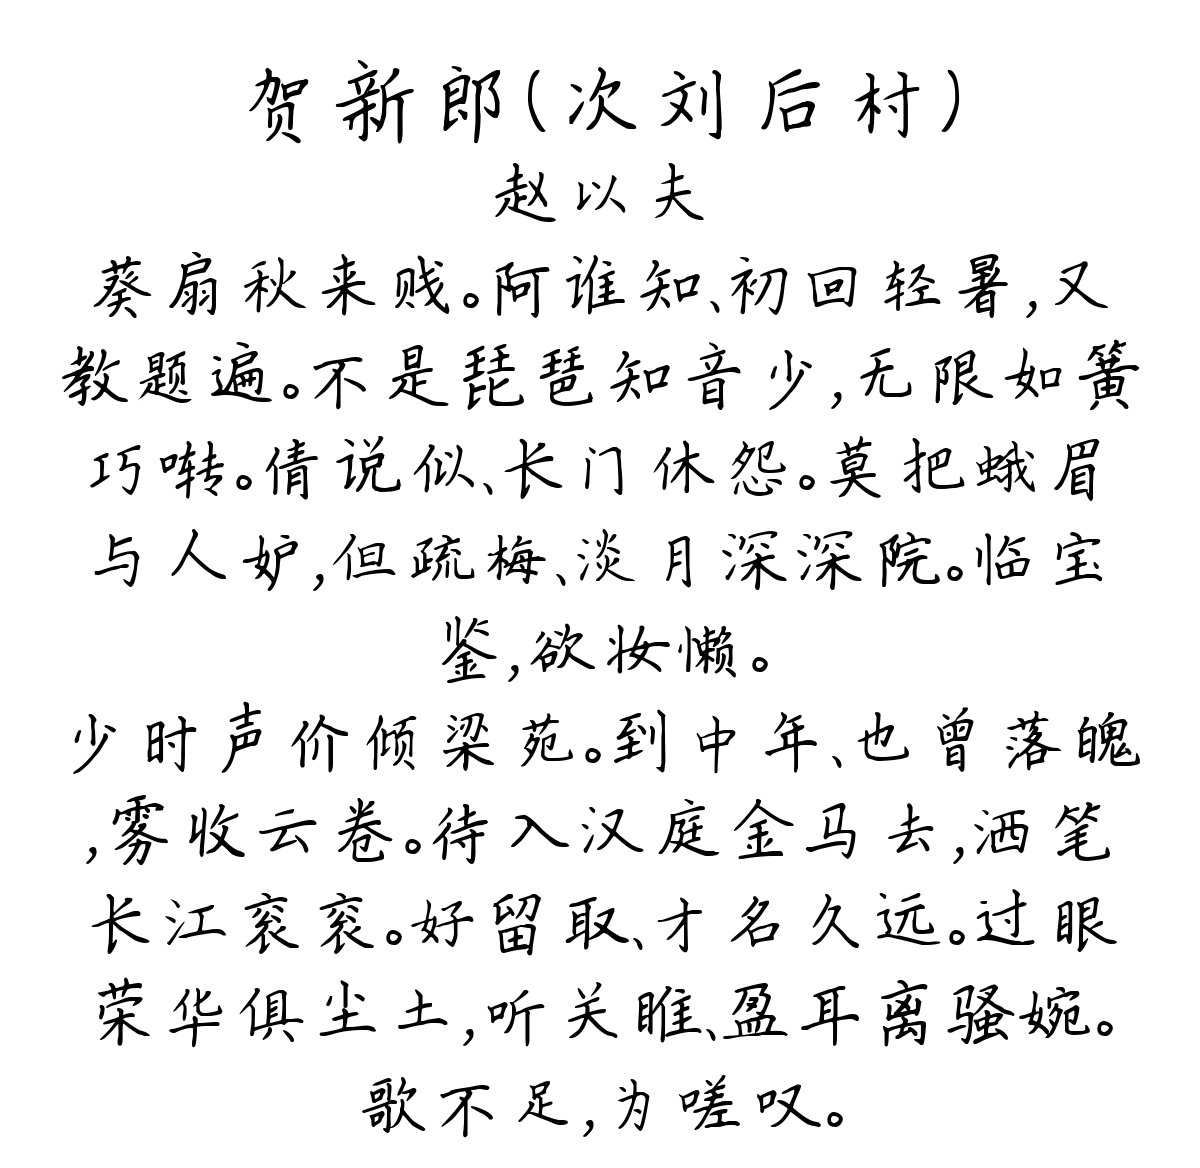 贺新郎(次刘后村)
赵以夫
葵扇秋来贱。阿谁知、初回轻暑,又
教题遍。不是琵琶知音少,无限如簧
巧啭。倩说似、长门休怨。莫把蛾眉
与人妒,但疏梅、淡月深深院。临宝
鉴,欲妆懒。
少时声价倾梁苑。到中年、也曾落魄
,雾收云卷。待入汉庭金马去,洒笔
长江衮衮。好留取、才名久远。过眼
荣华俱尘土,听关睢、盈耳离骚婉。
歌不足,为嗟叹。